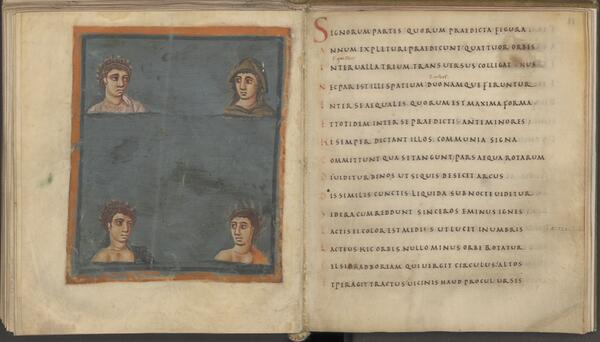 SIGNORUM PARTES QUORUM PRAEDICTA FIGURA
ANNUM EXPLETURI PRAEDICUNT QUATTUOR ORBES
INTERUALLA TRIUM TRANSUERSUS COLLIGAT UNUS
NEC PAR EST ILLIS PATIUM DUO NAMQUE FERUNTUR
INTER SE AEQUALES QUORUM EST MAXIMA FORMA
ET TOTIDEM INTER SE PRAEDICTIS ANTE MINORES
HI SEMPER DICTANT ILLOS COMMUNIA SIGNA
COMMITTUNT QUA SE TANGUNT PARS AEQUA ROTARUM
DIUIDITUR BINOS UT SI QUIS DESECET ARCUS
DISSIMILIS CUNCTIS LIQUIDA SUB NOCTE UIDETUR
SIDERA CUM REDDUNT SINCEROS EMINUS IGNES
LACTIS EI COLOR EST MEDIIS UT LUCET IN UMBRIS
LACTEUS HIC ORBIS NULLO MINUS ORBE ROTATUR
CELSIOR AD BORIAM QUI UERGIT CIRCULUS ALTOS
ET PERAGIT TRACTUS UICINIS HAUD PROCUL URSIS